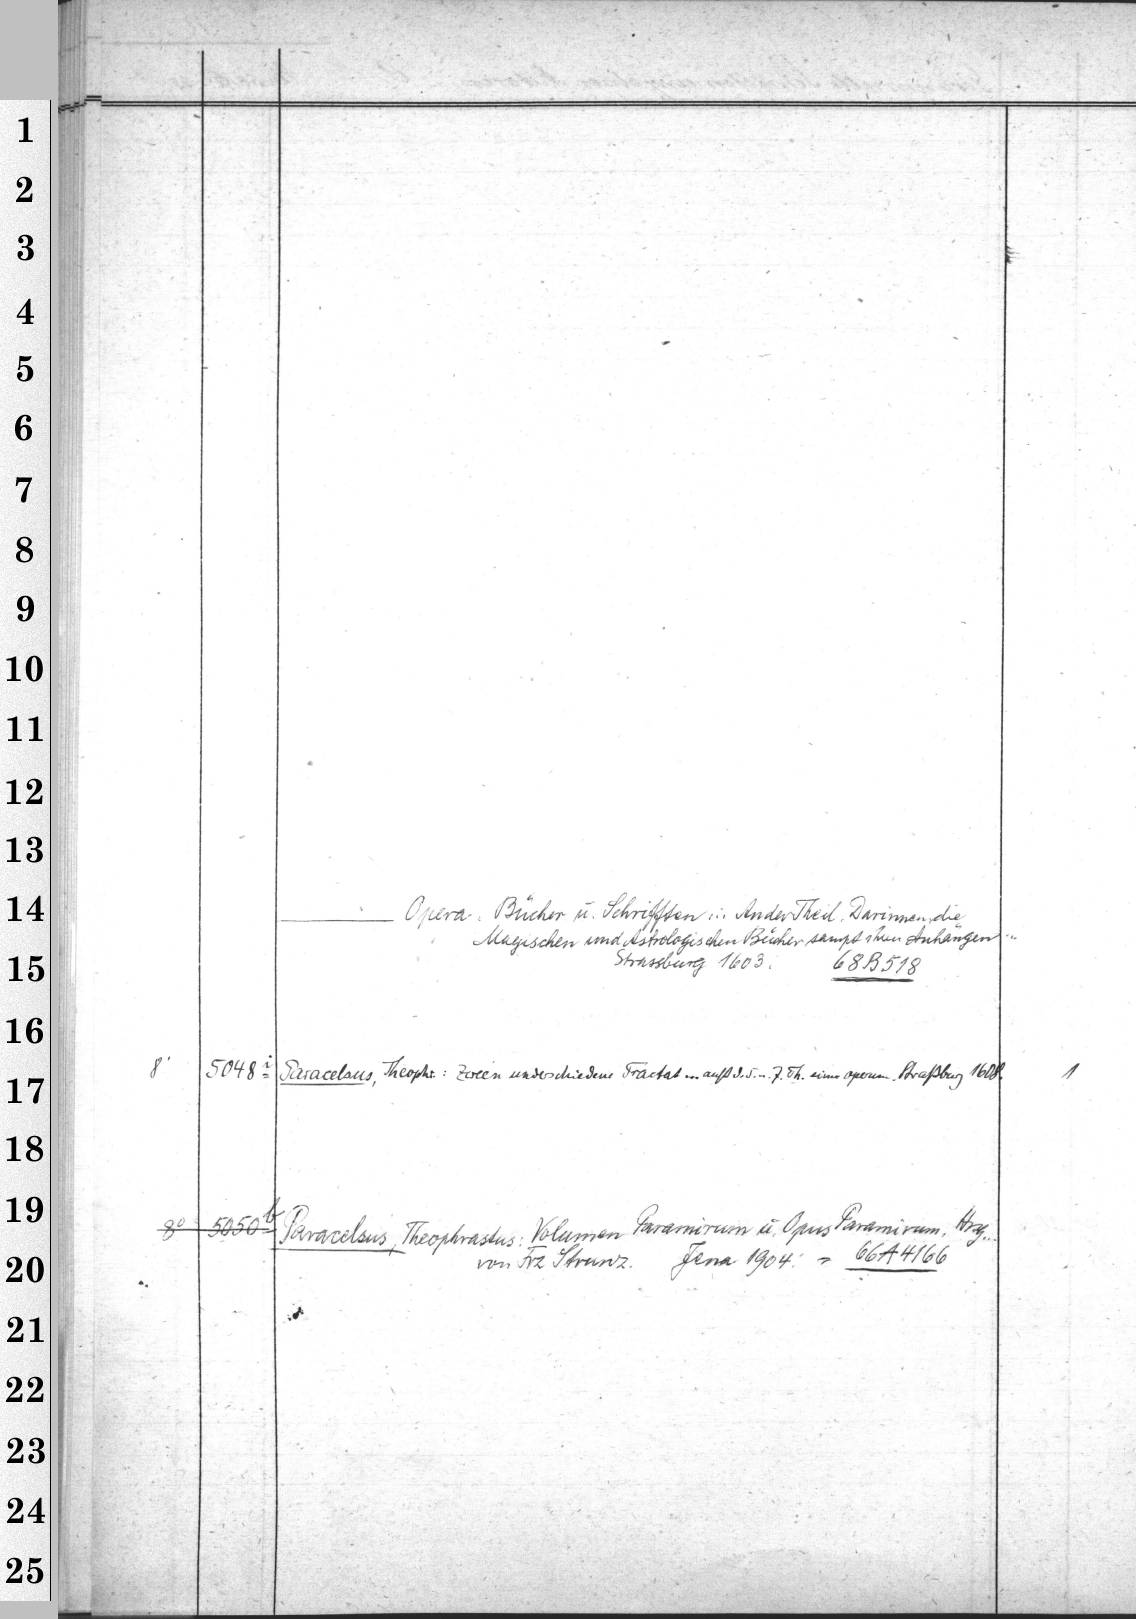 1
2
3
4
5
6
7
8
9
10
11
12
13
14
15
16
17
18
19
20
21
22
23
24
25
Opera. Bücher u. Schrifften ... Ander Theil. Darinnen die
Magischen und Astrologischen Bücher sampt ihren Anhängen ...
Strassburg 1603. 68B518
8° 5048 i Paracelsus, Theophr: Zween underschiedene Tractat ... auß d. 5. u. 7. Th. operum. Straßburg 1608. 1
8° 5050 b Paracelsus, Theophrastus: Volumen Paramirum u. Opus Paramirum. Hrg.
von Frz Strunz. Jena 1904. = 66A4166